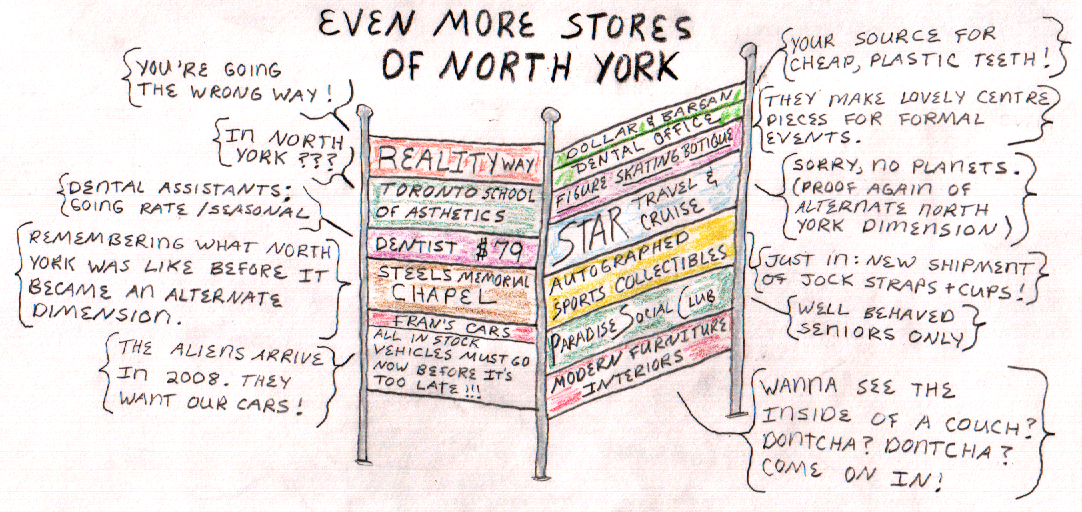 EVEN MORE STORES
OF NORTH YORK
YOU'RE GOING
THE WRONG WAY!
IN NORTH
YORK???
DENTAL ASSISTANTS:
GOING RATE/SEASONAL
REMEMBERING WHAT NORTH
YORK WAS LIKE BEFORE IT
BECAME AN ALTERNATE
DIMENSION.
THE ALIENS ARRIVE
IN 2008. THEY
WANT OUR CARS!
REALITY WAY
TORONTO SCHOOL
OF ASTHETICS
DENTIST $79
STEELS MEMORIAL
CHAPEL
FRAN'S CARS
ALL IN STOCK
VEHICLES MUST GO
NOW BEFORE IT'S
TOO LATE!!!
DOLLAR & BARGAN
DENTAL OFFICE
FIGURE SKATING BOTIQUE
STAR TRAVEL &
CRUISE
AUTOGRAPHED
SPORTS COLLECTIBLES
PARADISE SOCIAL CLUB
MODERN FURNITURE
INTERIORS
YOUR SOURCE FOR
CHEAP, PLASTIC TEETH!
THEY MAKE LOVELY CENTRE
PIECES FOR FORMAL
EVENTS.
SORRY, NO PLANETS.
(PROOF AGAIN OF
ALTERNATE NORTH
YORK DIMENSION)
JUST IN: NEW SHIPMENT
OF JOCK STRAPS + CUPS!
WELL BEHAVED
SENIORS ONLY
WANNA SEE THE
INSIDE OF A COUCH?
DONTCHA? DONTCHA?
COME ON IN!